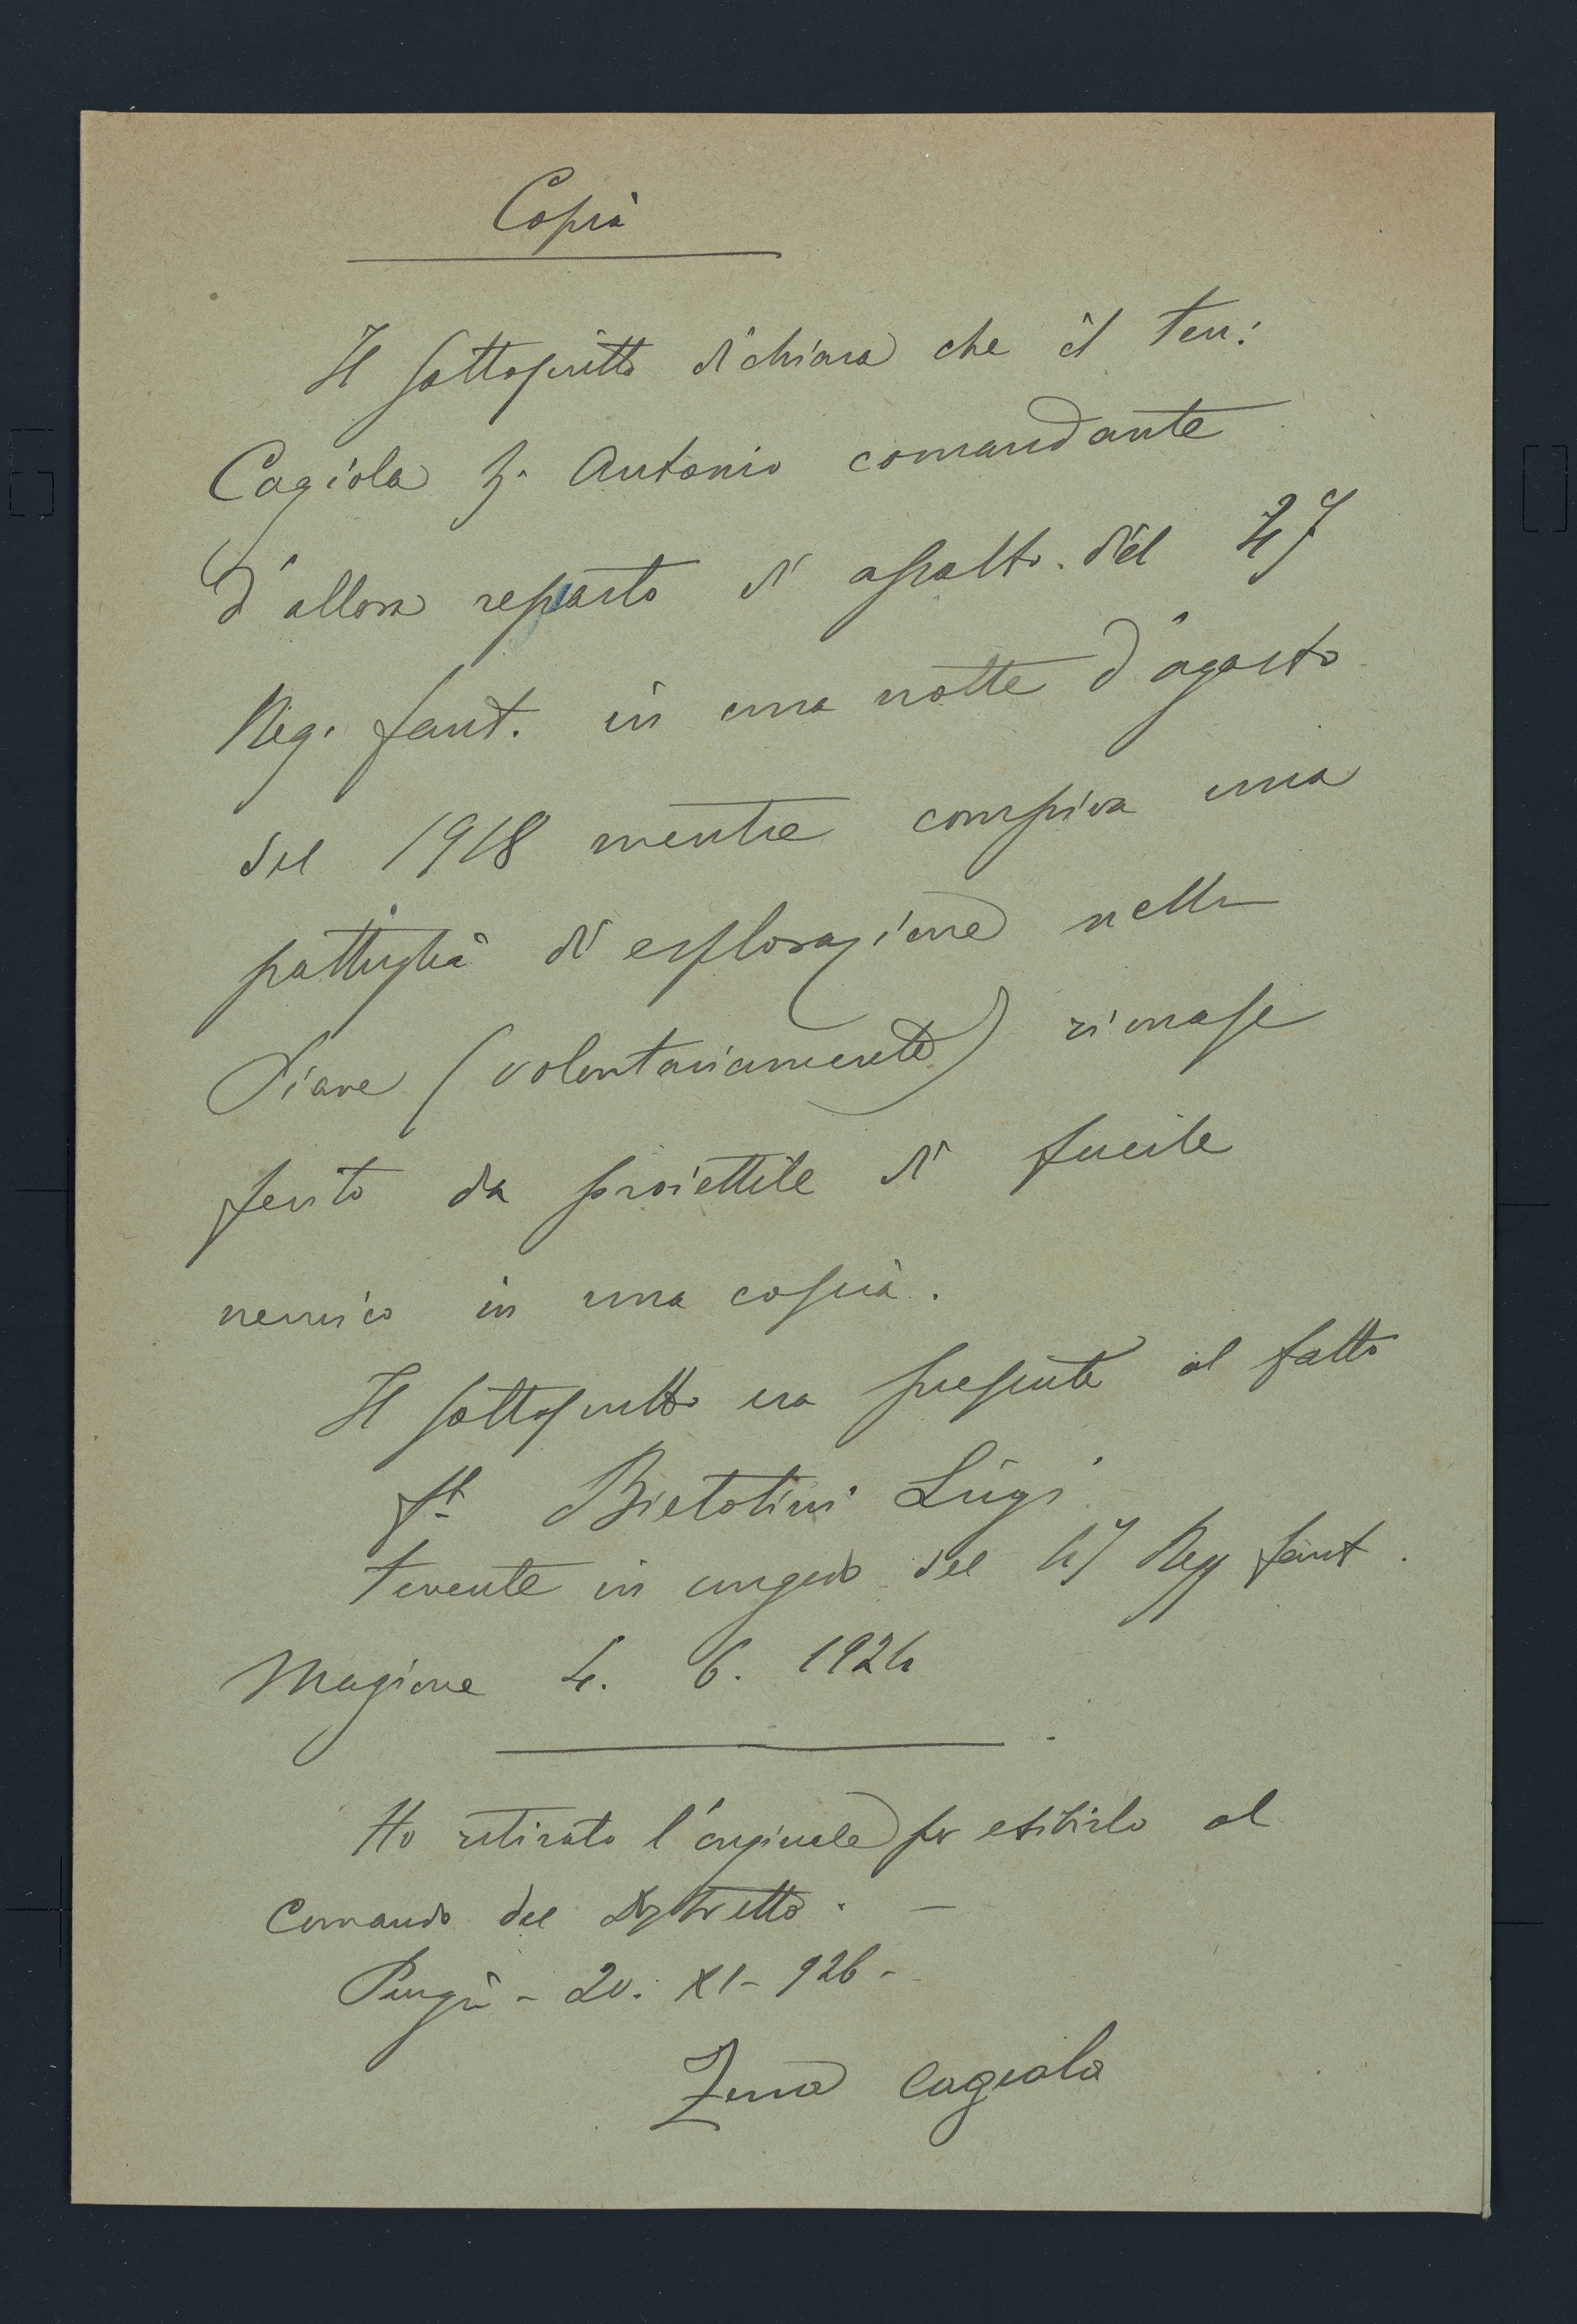 Copia
Il sottoscritto dichiara che il ten:
Cagiola Z. Antonio comandante
d'allora reparto di assalto del 47
Reg. fant. in una notte d'agosto
del 1918 mentre compiva una
pattuglia di esplorazione nella
Piave (volontariamente) rimase
ferito da proiettile di fucile
nemico in una coscia.
Il sottoscritto era presente al fatto
Ft Bietolini Luigi
tenente in congedo del 47 Regg fant.
Magione 4. 6. 1924
Ho ritirato l'originale per esibirlo al
Comando del Distretto. -
Perugia - 20. XI - 926 -
Cagiola